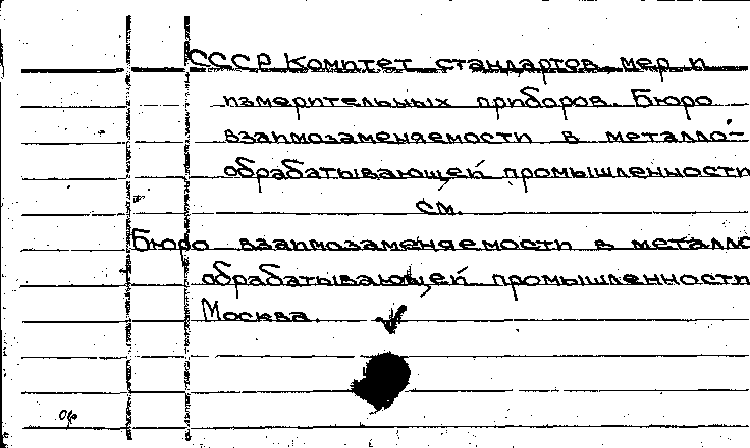 СССР Комитет стандартов, мер и
измерительных приборов. Бюро
взаимозаменяемости в металло-
обрабатывающей промышленности
см.
Бюро взаимозаменяемости в металло
обрабатывающей промышленности
Москва.